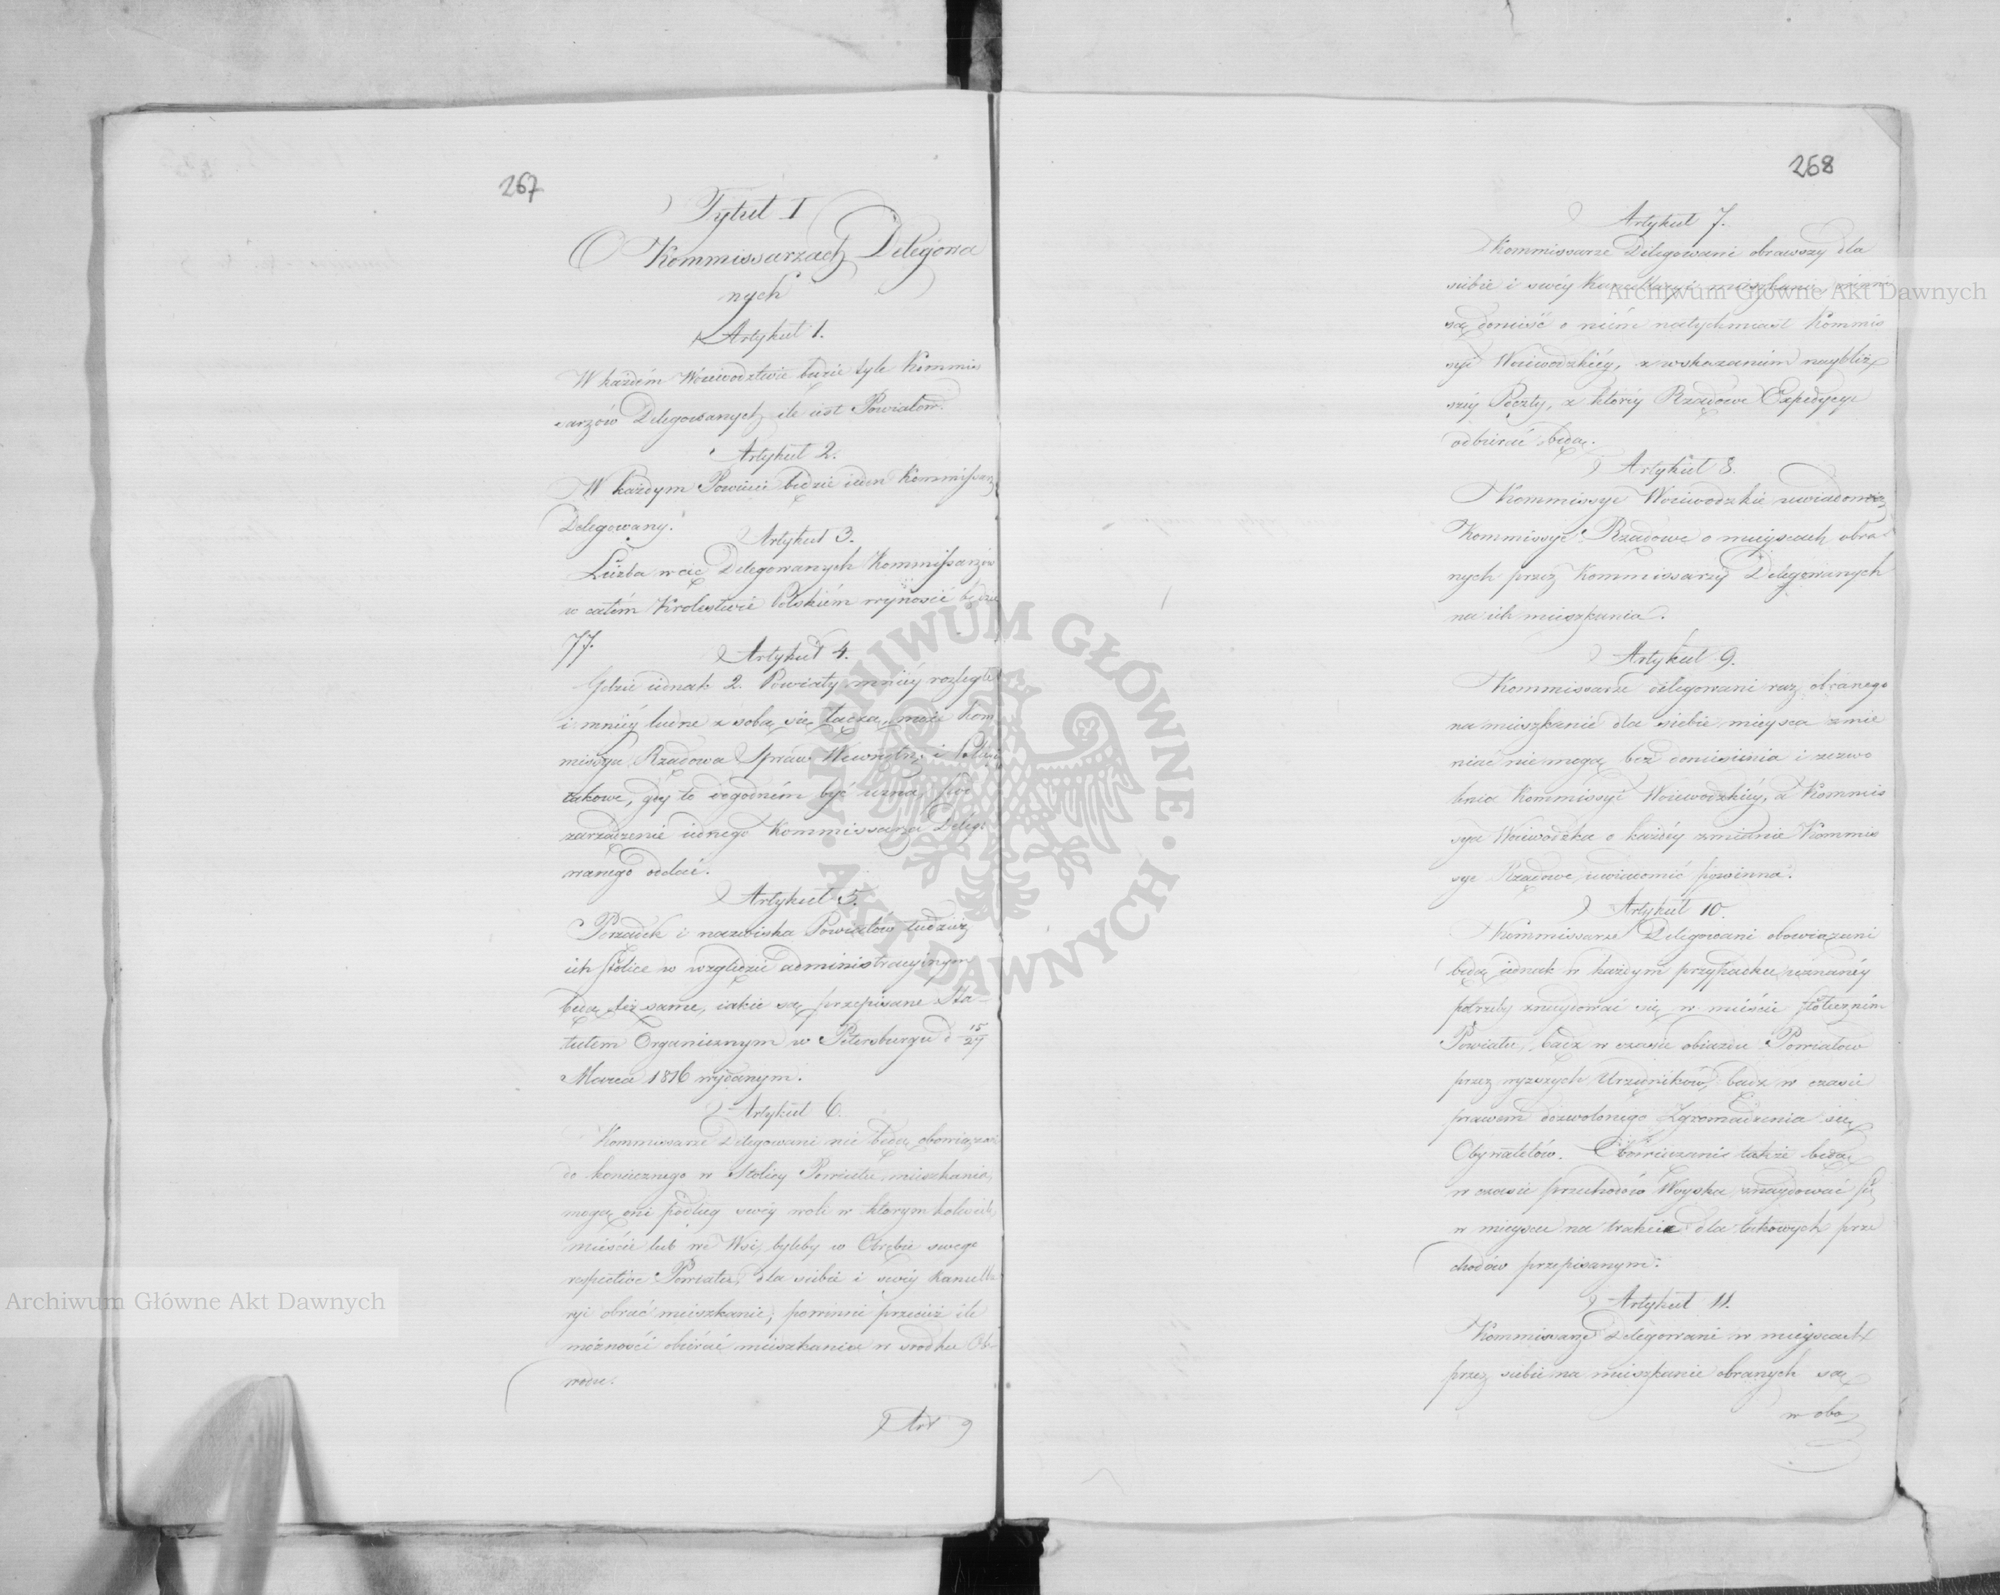 267
Tytuł I
O Kommissarzach Delegowa
nych
Artykuł 1.
W każdém Woiewodztwie będzie tyle Kommis
sarzów Delegowanych ile iest Powiatów.
Artykuł 2.
W każdym Powiecie będzie ieden Kommissarz
Delegowany.
Artykuł 3.
Liczba więc Delegowanych Kommissarzów
w całém Krolestwie Polskiém wynosić będzie
77.
Artykuł 4.
Gdzie iednak 2. Powiaty mniéy rozległe
i mniéy ludne z sobą się łączą, może Kom
missya Rządowa Spraw Wewnętr: i Policyi
takowe, gdy to dogodném być uzna, pod
zarządzenie iednego Kommissarza Delego
wanego oddać.
Artykuł 5.
Porządek i nazwiska Powiatów tudzież
ich Stolice w względzie administracyinym
będą też same, iakie są przepisane Sta-
tutem Organicznym w Petersburgu d 15/27
Marca 1816 wydanym.
Artykuł 6.
Kommissarze Delegowani nie będą obowiązani
do koniecznego w Stolicy Powiatu mieszkania,
mogą oni podług swéy woli w którym kolwiek
mieście lub we Wsi, byleby w Obrębie swego
respective Powiatu, dla siebie i swéy Kancella
ryi obrać mieszkanie; powinni przecież ile
możności obierać mieszkanie w srodku Ob-
wodu.
Art
268
Artykuł 7.
Kommissarze Delegowani obrawszy dla
siebie i swéy Kancellaryi mieszkanie, winni
są donieść o niém natychmiast Kommis
syi Woiewodzkiéy, z wskazaniem naybliż
széy Poczty, z któréy Rządowe Expedycye
odbierać będą.
Artykuł 8.
Kommissye Woiewodzkie uwiadomią
Kommissye Rządowe o mieyscach obra
nych przez Kommissarzy Delegowanych
na ich mieszkania.
Artykuł 9.
Kommissarze delegowani raz obranego
na mieszkanie dla siebie mieysca zmie
niać nie mogą bez doniesienia i zezwo
lenia Kommissyi Woiewodzkiéy, a Kommis
sya Woiewodzka o każdéy zmianie Kommis
sye Rządowe uwiadomić powinna.
Artykuł 10.
Kommissarze Delegowani obowiązani
będą iednak w każdym przypadku uznanéy
potrzeby znaydować się w mieście stołeczném
Powiatu, bądz w czasie obiazdu Powiatów
przez wyższych Urzędników, bądz w czasie
prawem dozwolonego Zgromadzenia się
Obywatelów. Obowiązani także będą
w czasie przechodów Woyska znaydować się
w mieyscu na trakcie dla takowych prze
chodów przepisanym.
Artykuł 11.
Kommissarze Delegowani w mieyscach
przez siebie na mieszkanie obranych są
w obo
Archiwum Główne Akt Dawnych
Archiwum Główne Akt Dawnych
ARCHIWUM GŁÓWNE · AKT DAWNYCH ·